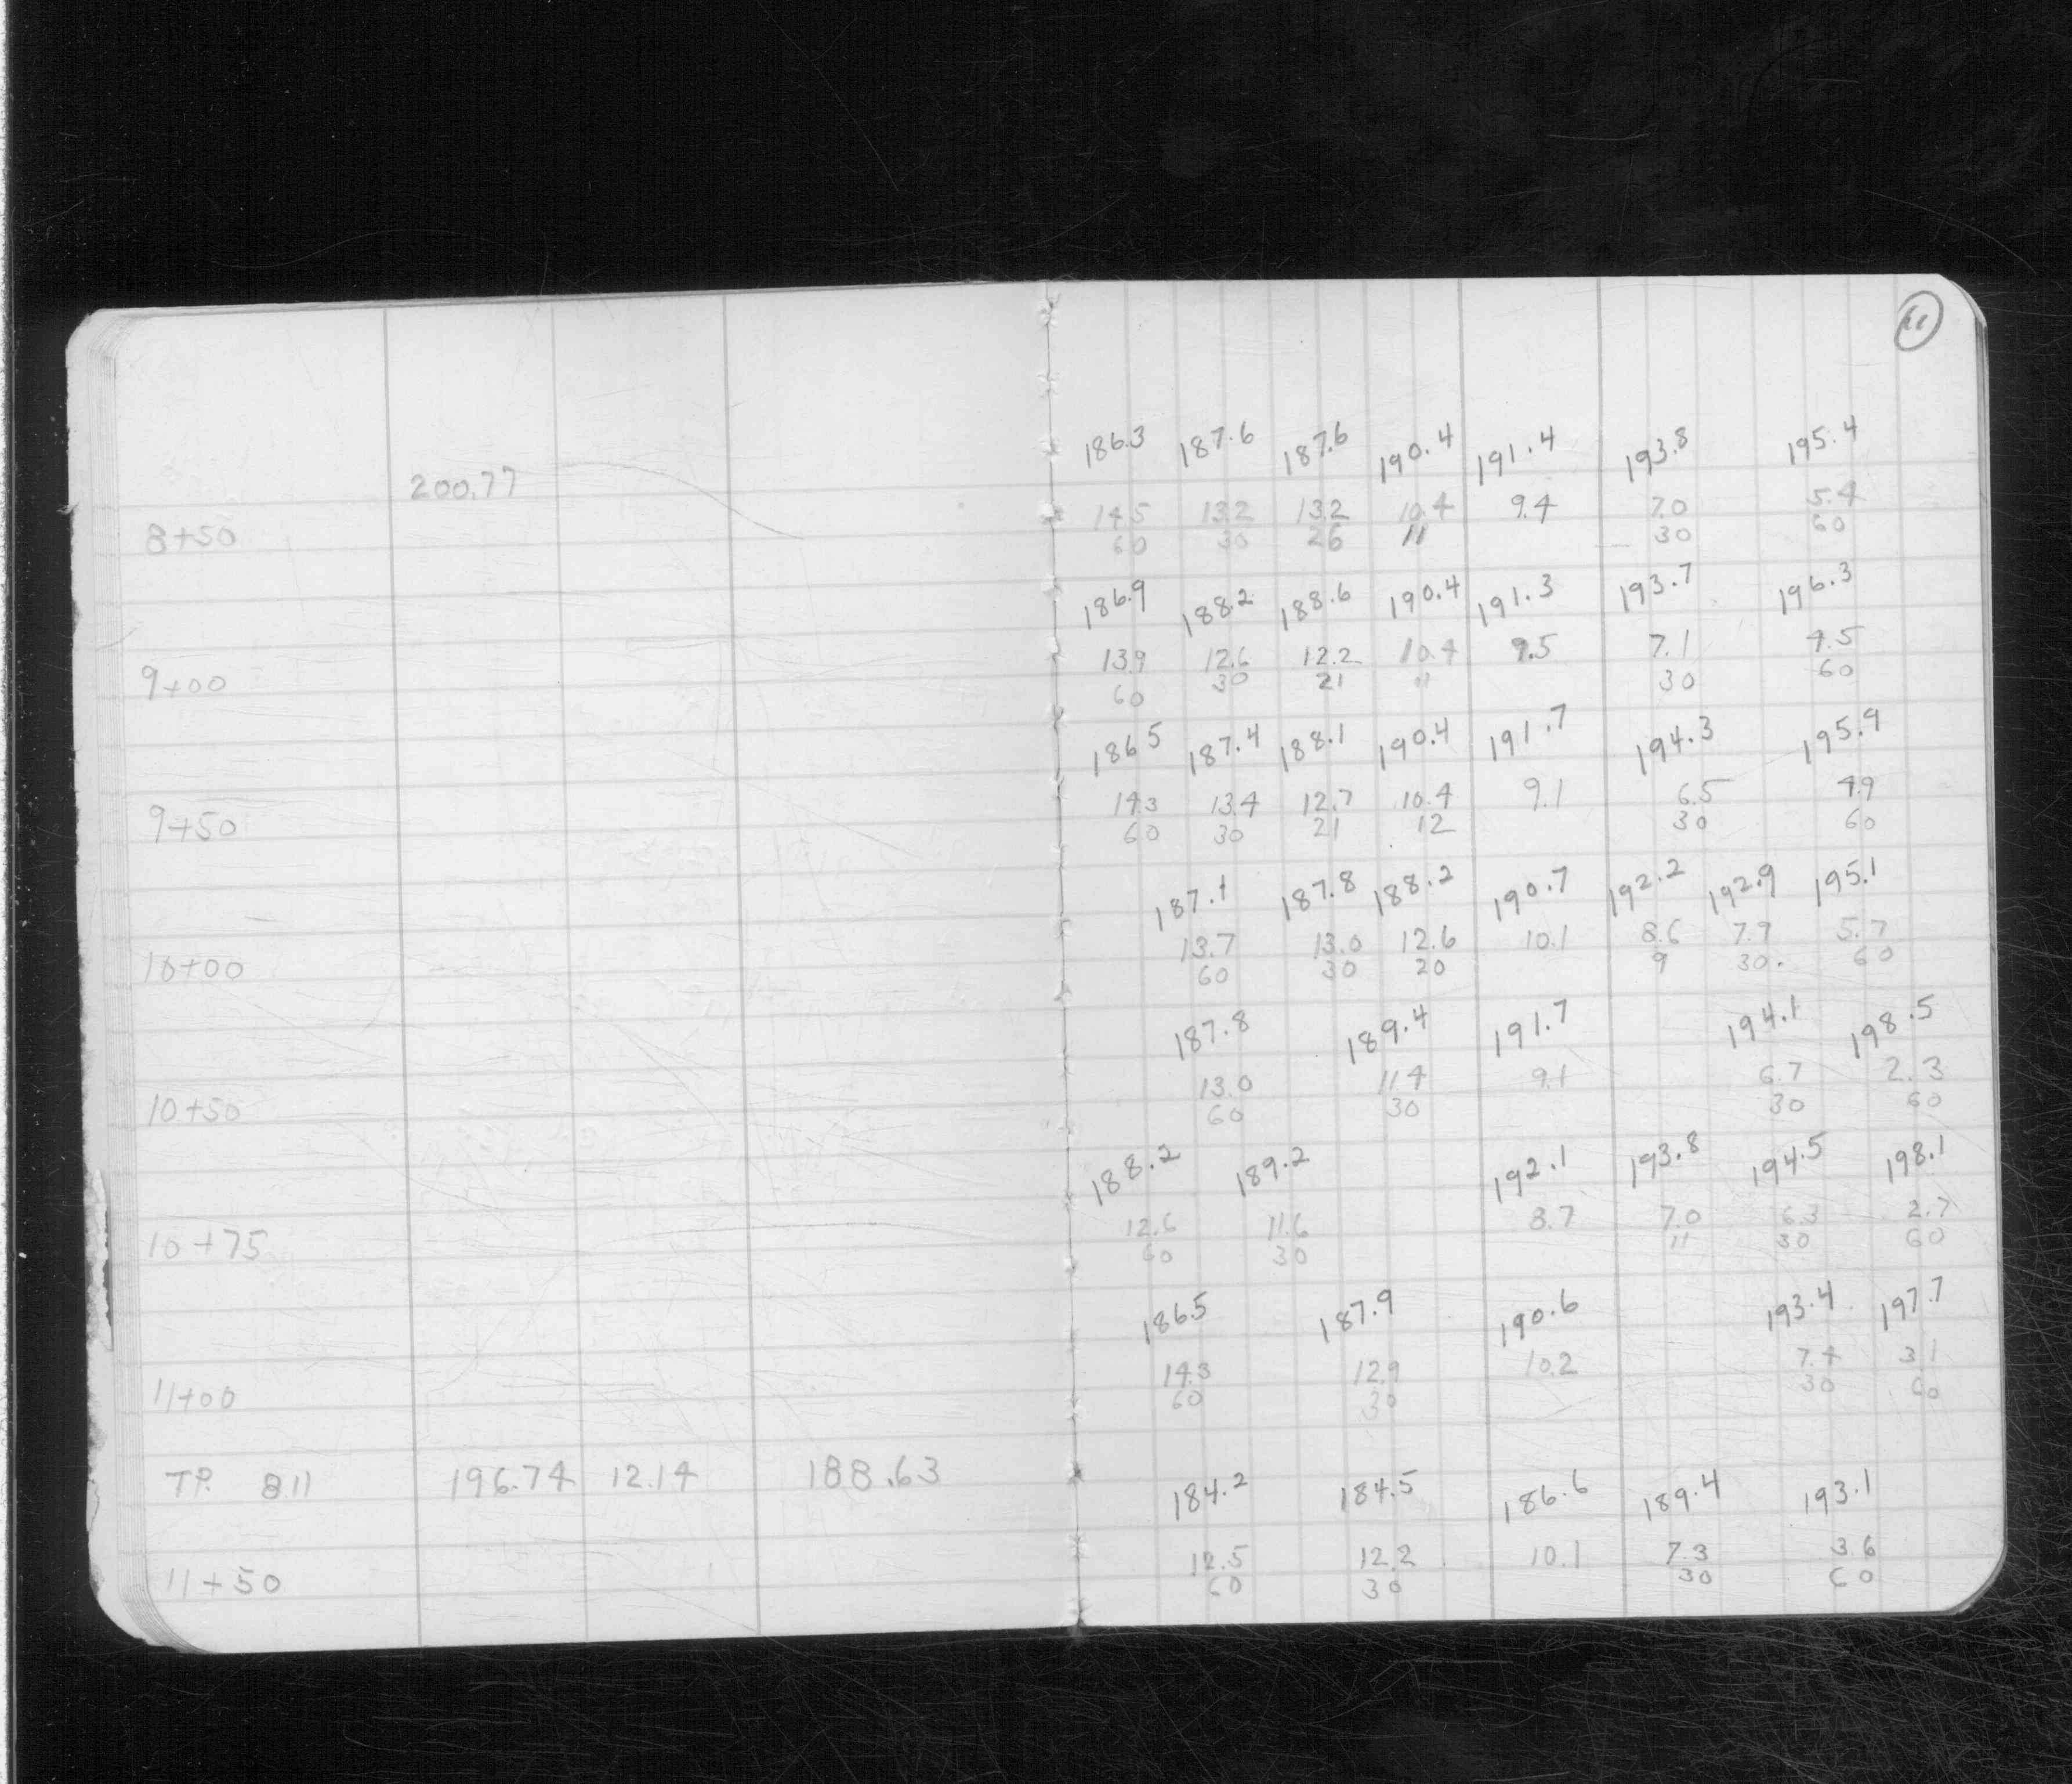 11
186.3 187.6 187.6 190.4 191.4 193.8 195.4
200.77
8+50 14.5 13.2 13.2 10.4 9.4 7.0 5.4
60 30 26 11 30 60
186.9 188.2 188.6 190.4 191.3 193.7 196.3
9+00 13.9 12.6 12.2 10.4 9.5 7.1 4.5
60 30 21 11 30 60
186.5 187.4 188.1 190.4 191.7 194.3 195.9
9+50 14.3 13.4 12.7 10.4 9.1 6.5 4.9
60 30 21 12 30 60
187.1 187.8 188.2 190.7 192.2 192.9 195.1
10+00 13.7 13.0 12.6 10.1 8.6 7.9 5.7
60 30 20 9 30. 60
187.8 189.4 191.7 194.1 198.5
10+50 13.0 11.4 9.1 6.7 2.3
60 30 30 60
188.2 189.2 192.1 193.8 194.5 198.1
10+75 12.6 11.6 8.7 7.0 6.3 2.7
60 30 11 30 60
186.5 187.9 190.6 193.4 197.7
11+00 14.3 12.9 10.2 7.4 3.1
60 30 30 60
T.P. 8.11 196.74 12.14 188.63
184.2 184.5 186.6 189.4 193.1
11+50 12.5 12.2 10.1 7.3 3.6
60 30 30 60